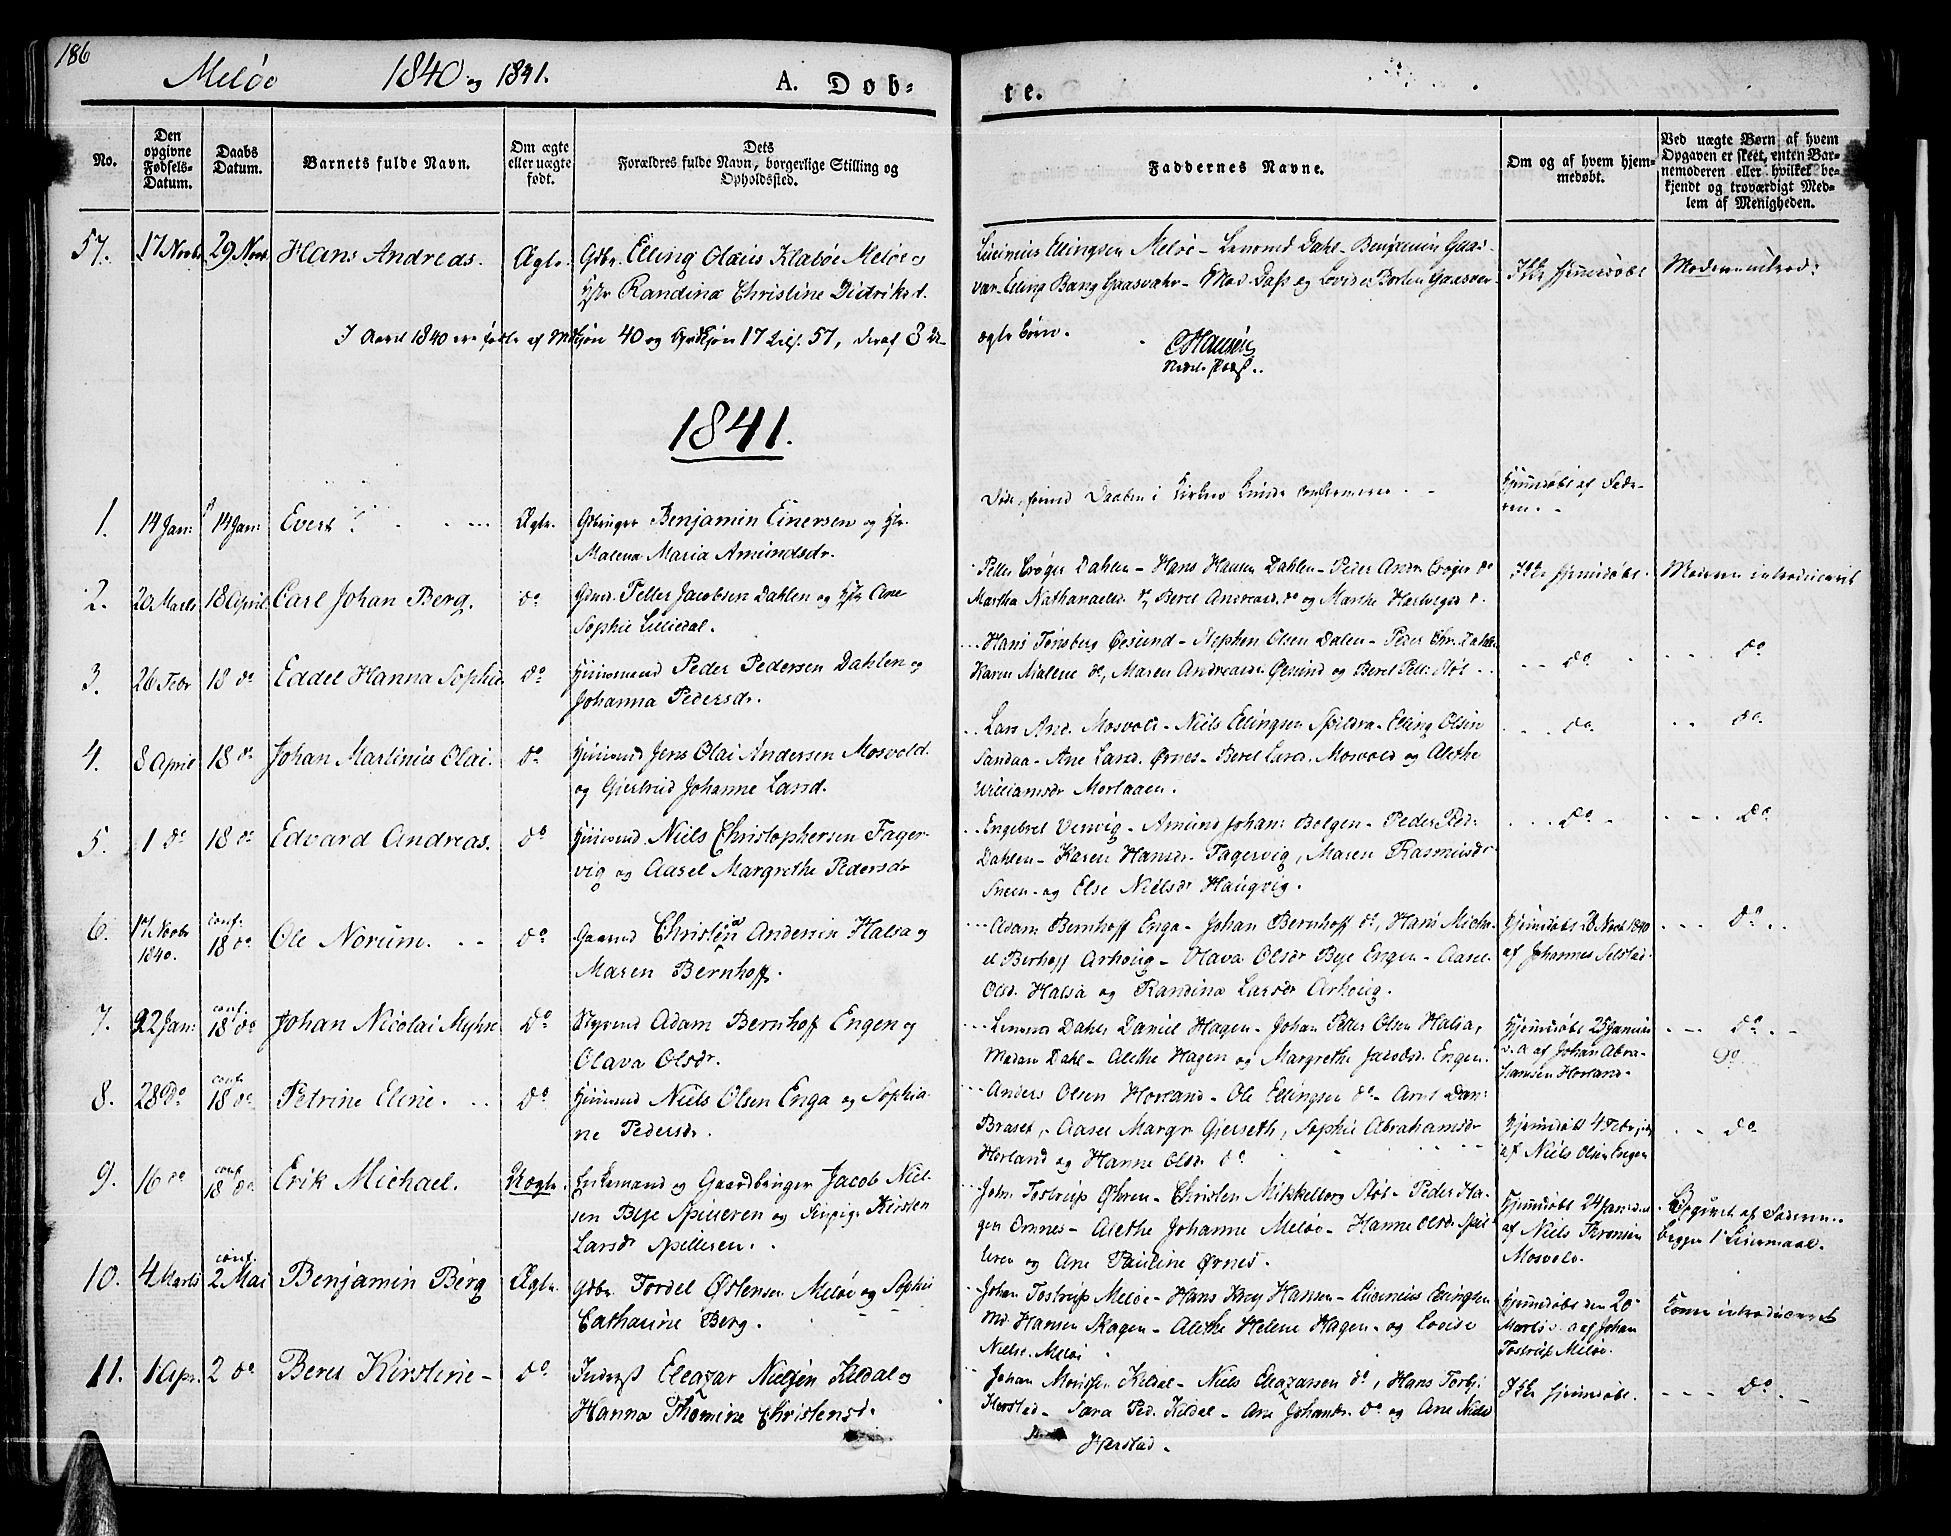 186
Meløe 1840 og 1841. A. Døb-
te.
No.
Den opgivne Fødsels-Datum.
Daabs Datum.
Barnets fulde Navn.
Om ægte eller uægte født.
Dets
Forældres fulde Navn, borgerlige Stilling og
Opholdssted.
Faddernes Navne.
Om og af hvem hjem-
medøbt.
Ved uægte Børn af hvem
Opgaven er skeet, enten Bar-
nemoderen eller hvilket be-
kjendt og troværdigt Med-
lem af Menigheden.
57. 17 Novbr 29 Novb Hans Andreas. Ægte. Gdbr. Elling Olaus Klaboe Meløe og
Hstr Randina Christine Didriksd.
Lucinius Ellingsen Meløe - Lensmd Dahl - Benjamin Gaas-
vær - Elling Bang Gaasvær - Mad. Dass og Lovise Borten Gaasvær
Ikke hjemmedøbt
Moderen introd:
I Aaret 1840 ere fødte af Mdkjøn 40 og Qvdkjøn 17 Tils. 57, deraf 3 U-
ægte Børn.
C Hansen
1841.
1. 14 Jan: 14 Jan: Evert Ægte. Gdbruger Benjamin Einersen og Hstr.
Malena Maria Amundsdr.
Døde, forend Daaben i Kirken kunde confirmeres
Hjemdøbt af Fade-
ren.
2. 20 Marts 18 April Carl Johan Berg. do Gdmd. Petter Jacobsen Dahlen og Hstr Ane
Sophie Liliedal.
Petter Crøger Dahlen - Hans Hansen Dahlen - Peder Andr. Crøger do
Martha Nathanaelsd. do, Beret Andreasd. do og Marthe Hartvigsd do.
Ikke hjemdøbt.
Moderen introduceret
3. 26 Febr 18 do Eddel Hanna Sophie do Huusmand Peder Pedersen Dahlen og
Johanna Pedersdr.
Hans Tønsberg Øesund - Stephen Olsen Dalen - Peder Chr. Dahlen
Karen Malene do, Maren Andreasdr Øesund og Beret Pett. Støt
do
do
4. 8 April 18 do Johan Martinus Olai. do Huusmd Jens Olai Andersen Mosvold.
og Gjertrud Johanne Larsd.
Lars And. Mosvold - Niels Ellingsen Spildra - Elling Olsen
Sandaa - Ane Larsd. Ørnes - Beret Larsd. Mosvold og Alethe
Williamsdr Mortaaen.
do.
do.
5. 1 do 18 do Edvard Andreas. do Huusmd Niels Christophersen Fager-
vig og Aasel Margrethe Pedersdr
Engebret Venvig - Amund Johans Bolgen - Peder Peds.
Dahlen - Karen Hansdr. Fagervig, Maren Rasmusdr
Sneen - og Else Nielsdr Haugvig.
do
do
6. 17 Novbr 1840. conf. 18 do Ole Norum. do Gaarmd Christen Andersen Halsa og
Maren Bernhoff.
Adam Bernhoff Enga - Johan Bernhoff do, Hans Micha-
el Berhoff Arhoug - Olava Olsdr Beje Engen - Aasel
Olsd. Halsa og Randina Larsdr Arhoug.
Hjemdøbt 28 Novb 1840
af Johannes Selstad.
do
7. 22 Jan: conf. 18 do Johan Nicolai Myhre do Styrmd Adam Bernhoff Engen og
Olava Olsdr.
Lensmd Dahl, Daniel Hagen - Johan Peter Olsen Halsa,
Madam Dahl - Alethe Hagen og Margrethe Jacobsd. Engen.
Hjemdøbt 25 Januar
d. a. af Johan Abra-
hamsen Horland.
do
do.
8. 28 do conf. 18 do Petrine Eline. do Huusmd Niels Olsen Enga og Sophia-
ne Pedersdr.
Anders Olsen Horland - Ole Ellingsen do - Arnt Dan:
Braset, - Aasel Margr. Gjerseth, Sophie Abrahamsdr
Horland og Hanne Olsdr do
Hjemdøbt 4 Febr
af Niels Olsen Engen
do
9. 16 do conf. 18 do Erik Michael. Uægte. Enkemand og Gaardbruger Jacob Niel-
sen Beje Spilleren og Pige Kirsten
Larsdr Spilleren.
John Tostrup Ørnes - Christen Mikkelborg Støt - Peder Ha-
gen Ornnes - Alethe Johanne Meløe - Hanne Olsdr Spil-
leren og Ane Pauline Ørnes.
Hjemdøbt 24 Jan
af Niels
Mosvold.
Opgivet af Faderen.
Begges 1ste Leiermaal.
10. 4 Marts conf. 2 Mai Benjamin Berg Ægte. Gdbr. Tordel Østensen Meløe og Sophie
Catharine Berg.
Johan Tostrup Meløe - Hans Krey Hansen - Lucinius Ellingsen
Md. Hansen Skagen - Alethe Helene Hagen - og Lovise
Nielsd. Meløe
Hjemdøbt den 20
Marts d. a. af Johan
Tostrup Meløe.
Konen introduceret
11. 1 Apr. 2 do Beret Kirstine - do Inderst Eleazar Nielsen Kildal og
Hanna Thomine Christensd.
Johan Mons Kildal - Niels Eleazarsen do, Hans Torbj.
Herstad - Sara Ped. Kildal - Ane Johansdr. do og Ane Niels
Herstad.
Ikke hjemdøbt.
do